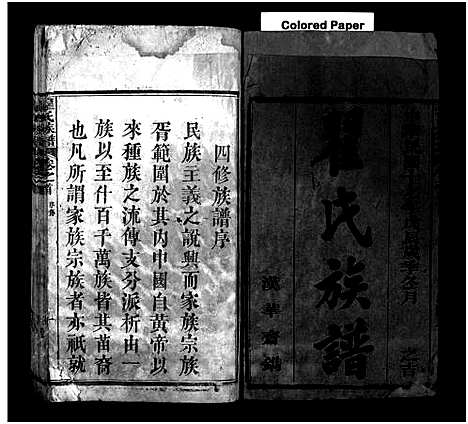 Colored Paper
翟氏族譜
漢華齋鐫
四修族譜序
民族主義之說興而家族宗族
胥範圍於其內中國自黃帝以
來種族之流傳支分派析由一
族以至什百千萬族皆其苗裔
也凡所謂家族宗族者亦祇就
翟氏族譜